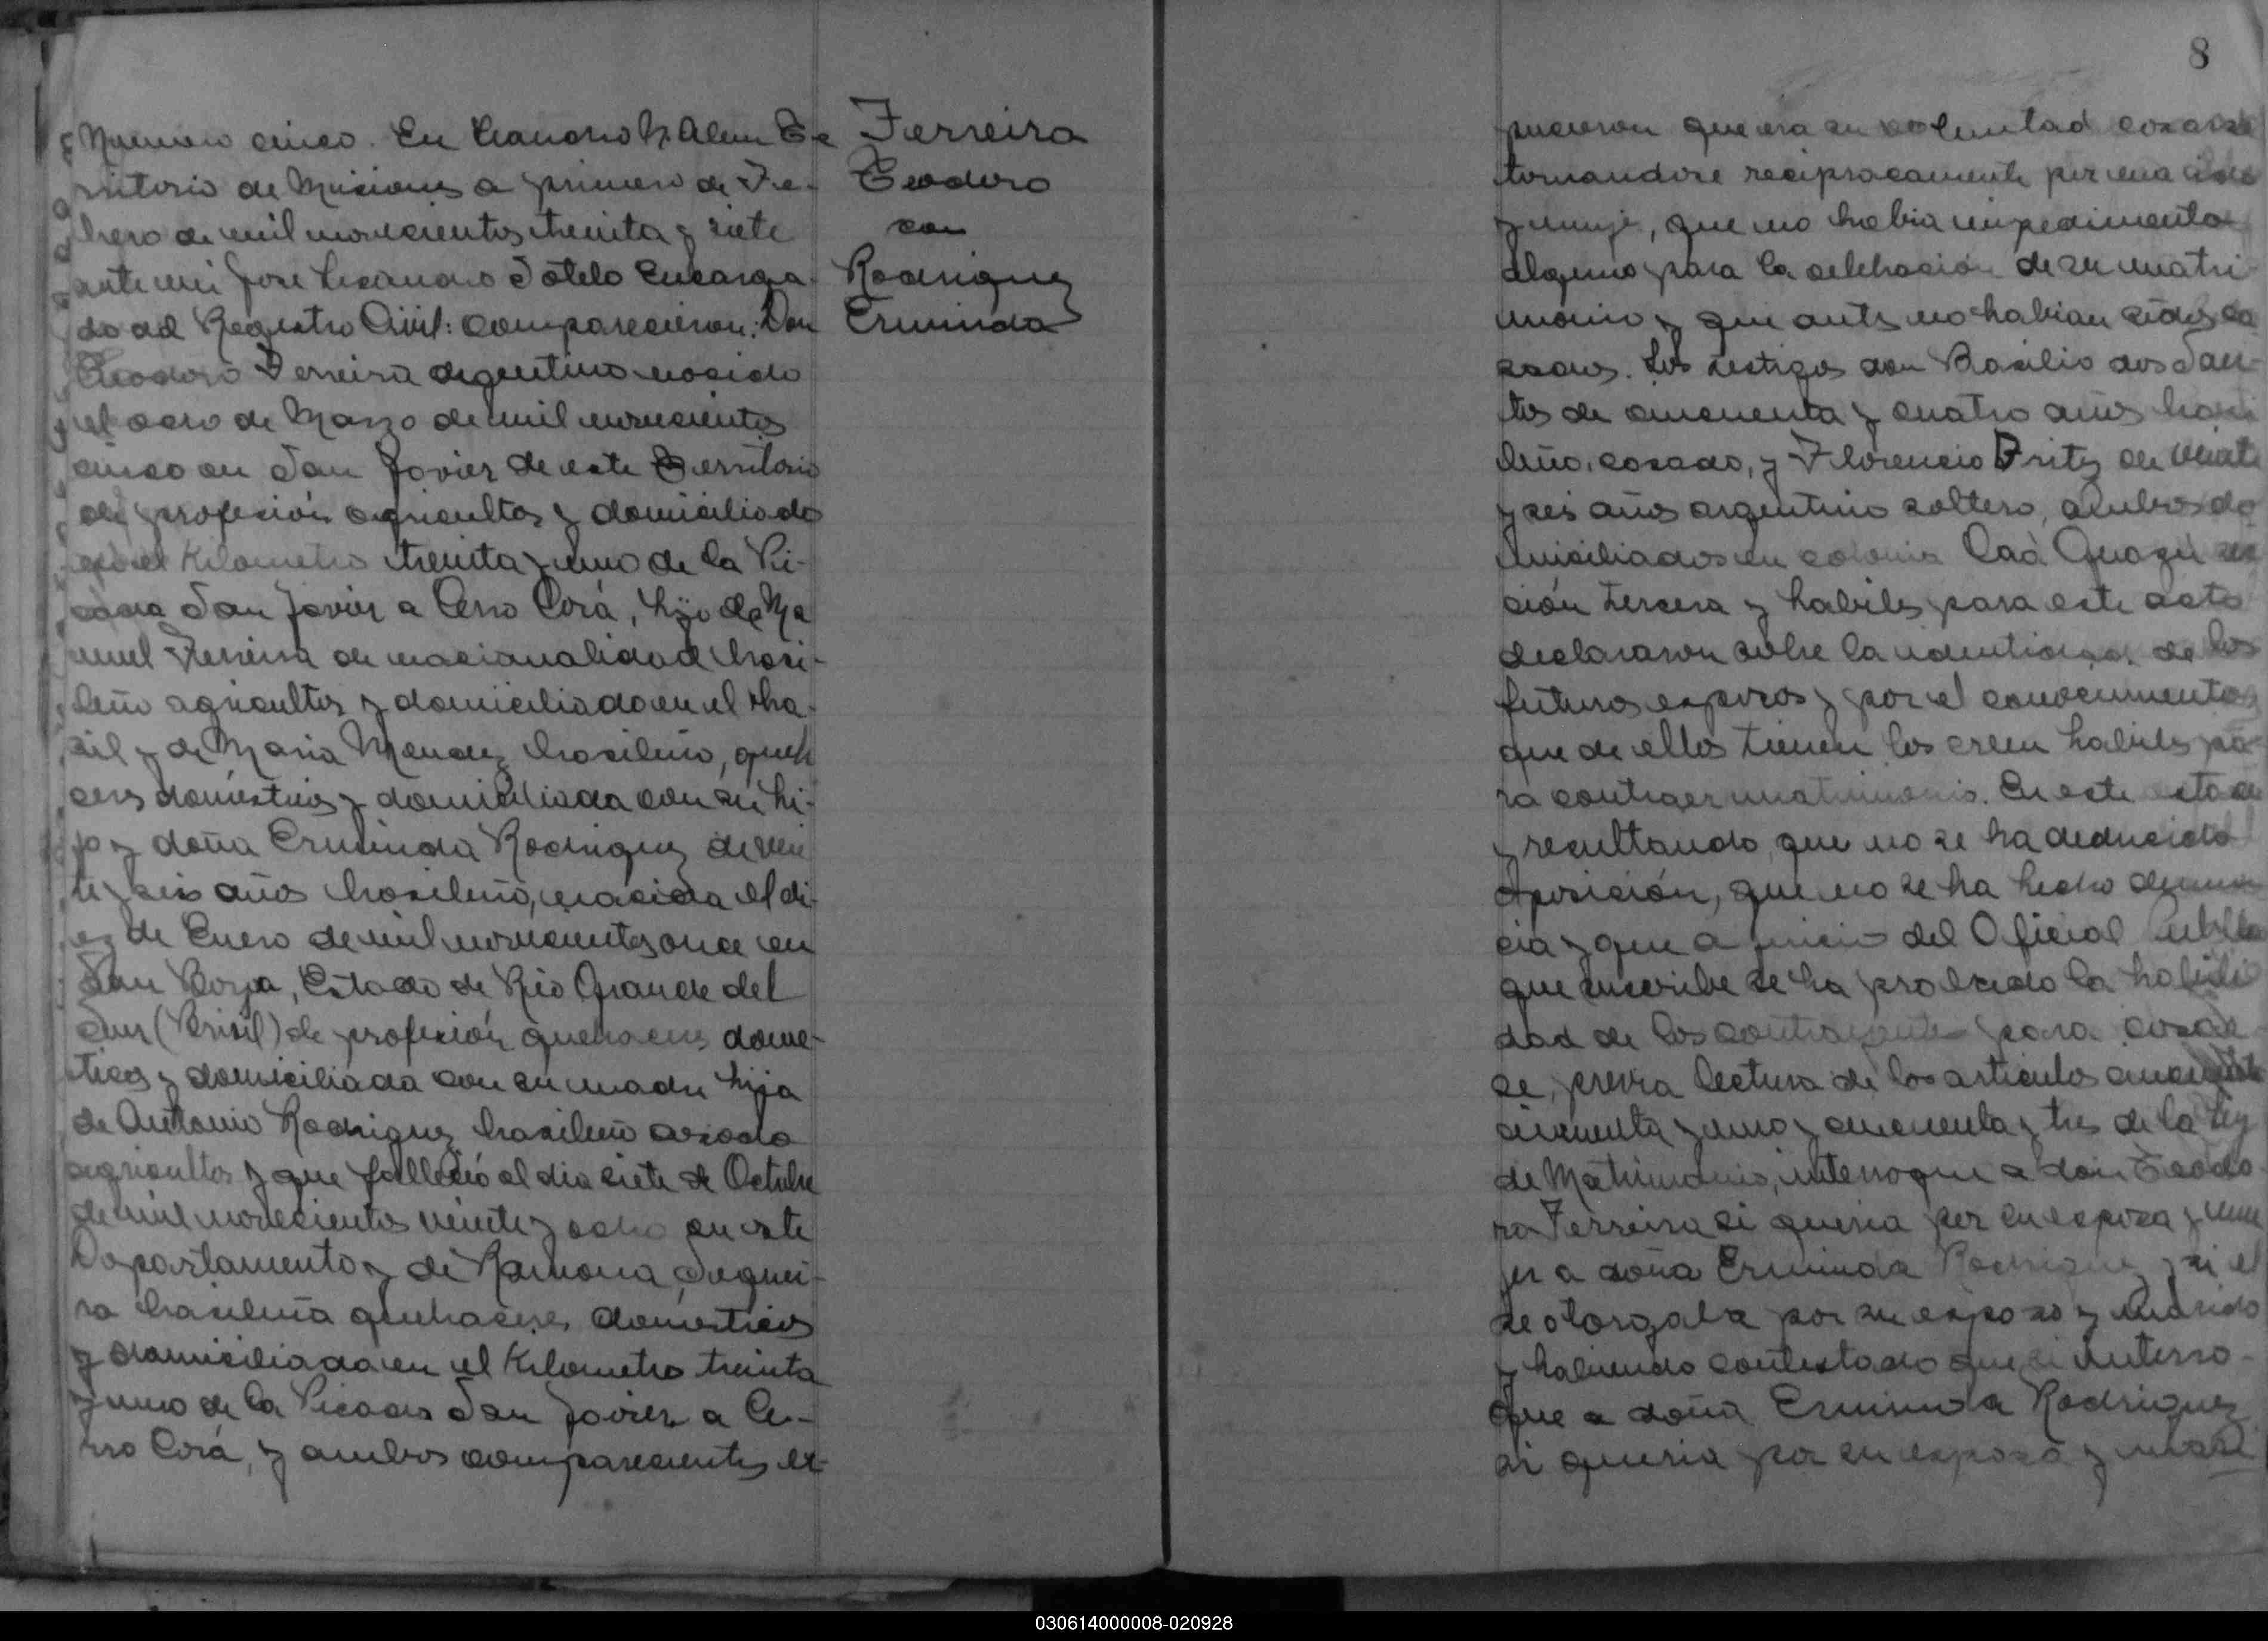 Numero cinco. En Leandro N. Alem Te
rritorio de Misiones a primero de Fe-
brero de mil novecientos treinta y siete
ante mi Jose Lisandro Sotelo Encarga-
do del Registro Civil: comparecieron: Don
Teodoro Ferreira argentino nacido
el ocho de Marzo de mil novecientos
cinco en San Javier de este Territorio
de profesión agricultor y domiciliado
en el Kilometro treinta y uno de la Pi-
cada San Javier a Cerro Corá, hijo de Ma
nuel Ferreira de nacionalidad brasi-
leño agricultor y domiciliado en el Bra-
sil y de Maria Mendez brasileño, queh
ceres domésticos y domiciliada con su hi-
jo y doña Erminda Rodriguez de vein
te y seis años brasileño, nacida el di-
ez de Enero de mil novecientos once en
San Borja, Estado de Rio Grande del
Sur (Brisil) de profesión quehaceres dome-
ticos y domiciliada con su madre hija
de Antonio Rodriguez brasileño casado
agricultor y que falleció el dia siete de Octubre
de mil novecientos veinte y ocho en este
Departamento y de Ramona Sequei-
ra brasileña quehaceres domesticos
y domiciliada en el Kilometro treinta
y uno de la Picada San Javier a Ce-
rro Corá, y ambos comparecientes ex-
Ferreira
Teodoro
con
Rodriguez
Erminda
8
pucieron que era su voluntad casarse
tomandose reciprocamente por
y mujer, que no habia impedimento
alguno para la celebración de su matri
monio y que antes no habian sidos ca
sados. Los testigos don Basilio dos San-
tos de cincuenta y cuatro años brasi
leño, casado, y Florencio Britez de veinte
y seis años argentino soltero, ambos do
miciliados en colonia Caá Guazú sec
ción tercera y habiles para este acto
declararon sobre la identidad de los
futuros esposos y por el conocimiento
que de ellos tienen los creen habiles pa
ra contraer matrimonio. En este estado
y resultando, que no se ha deducido
oposición, que no se ha hecho denun
cia y que a juicio del Oficial Publico
que suscribe se ha probado la habili
dad de los contrayentes para casar
se, previa lectura de los articulos cincuenta
cincuenta y uno y cincuenta y tres de la Ley
de Matrimonio, interrogue a don Teodo
ro Ferreira si queria por su esposa y mu
jer a doña Erminda Rodriguez y si el
se otorgaba por su esposo y marido
y habiendo contestado que si interro-
gue a doña Erminda Rodriguez
si queria por su esposo y mari
030614000008-020928